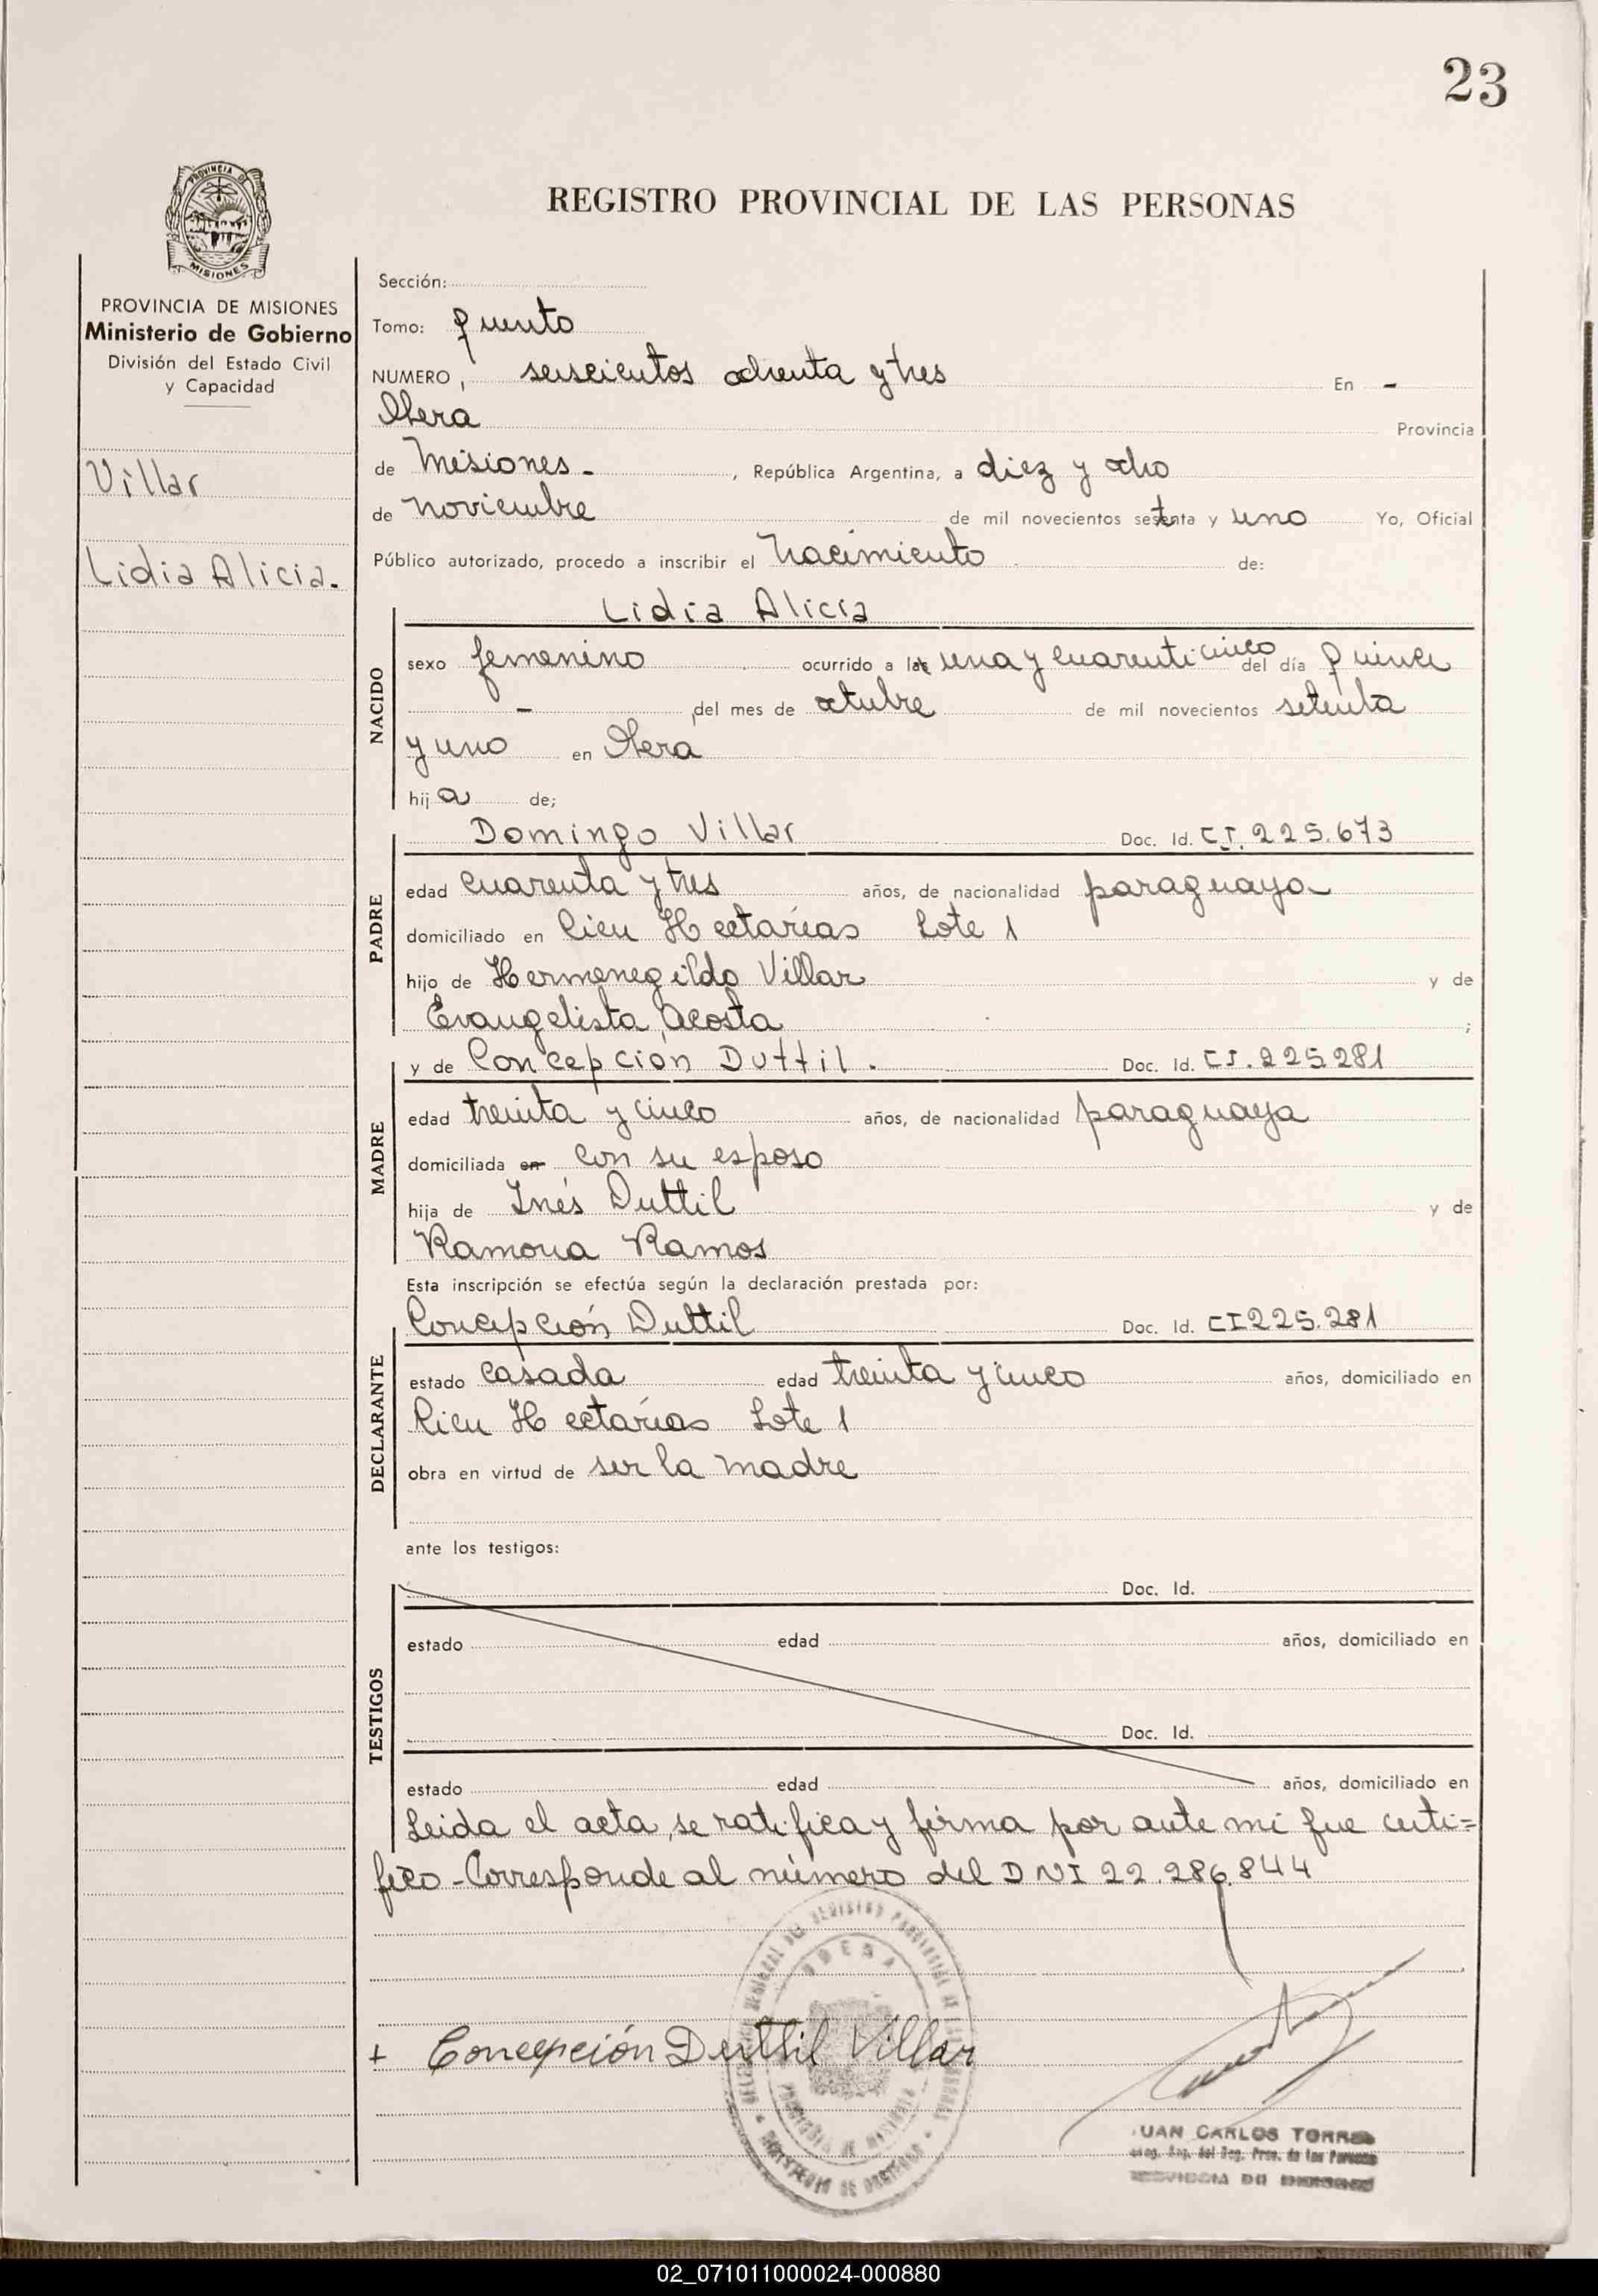 23
PROVINCIA DE
MISIONES
REGISTRO PROVINCIAL DE LAS PERSONAS
PROVINCIA DE MISIONES
Ministerio de Gobierno
División del Estado Civil
y Capacidad
Villar
Lidia Alicia.
Sección:
Tomo: quinto
NUMERO, seiscientos ochenta y tres En -
Obera Provincia
de Misiones - , República Argentina, a diez y ocho
de noviembre de mil novecientos setenta y uno Yo, Oficial
Público autorizado, procedo a inscribir el Nacimiento de:
Lidia Alicia
NACIDO
sexo femenino ocurrido a la una y cuarenticinco del día quince
- del mes de octubre de mil novecientos setenta
y uno en Obera
hija de;
PADRE
Domingo Villar Doc. Id. CI. 225.673
edad cuarenta y tres años, de nacionalidad paraguaya
domiciliado en Cien Hectarias Lote 1
hijo de Hermenegildo Villar y de
Evangelista Acosta ;
MADRE
y de Concepción Duttil. Doc. Id. CI. 225281
edad treinta y cinco años, de nacionalidad paraguaya
domiciliada en con su esposo
hija de Inés Duttil y de
Ramona Ramos
Esta inscripción se efectúa según la declaración prestada por:
DECLARANTE
Concepción Duttil Doc. Id. CI 225.281
estado casada edad treinta y cinco años, domiciliado en
Cien Hectarias Lote 1
obra en virtud de ser la madre
ante los testigos:
TESTIGOS
Doc. Id.
estado edad años, domiciliado en
Doc. Id.
estado edad años, domiciliado en
Leida el acta, se ratifica y firma por ante mi que certi=
fico - Corresponde al número del DNI 22.286.844
OBERA
PROVINCIA DE MISIONES
+ Concepción Duttil Villar
JUAN CARLOS TORRES
del Reg. Prov. de las Personas
PROVINCIA DE MISIONES
02_071011000024-000880